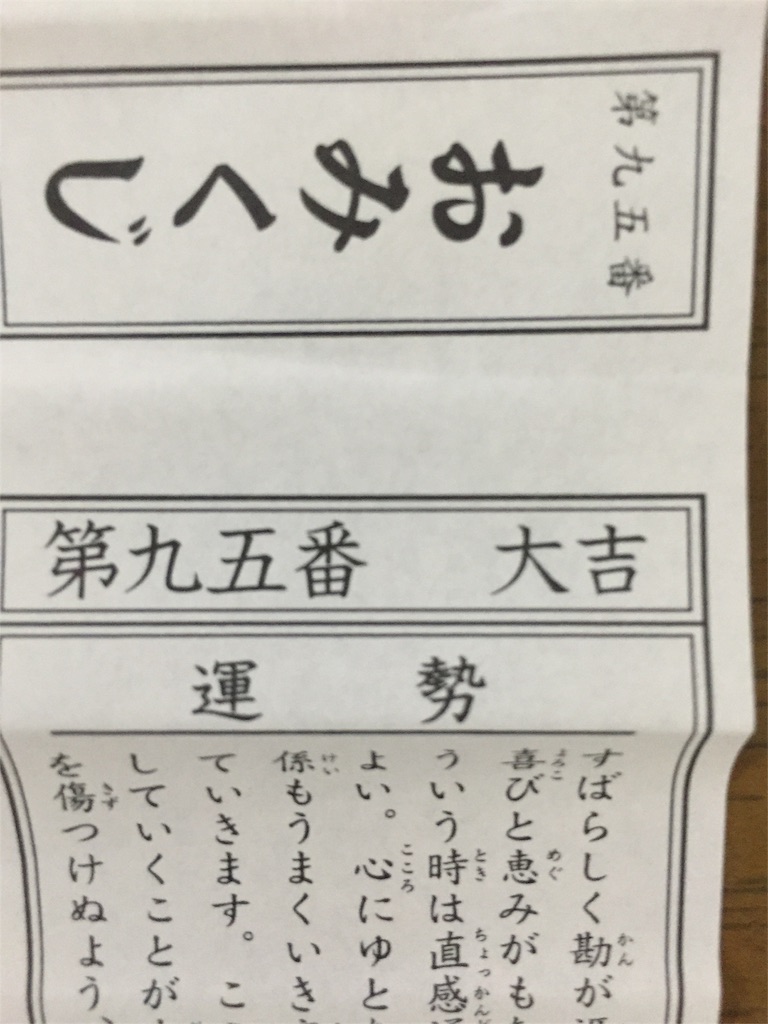 第九五番
おみくじ
第九五番 大吉
運勢
すばらしく勘が
喜びと恵みがも
ういう時は直感
よい。心にゆと
係もうまくいき
ていきます。こ
していくことが
を傷つけぬよう、